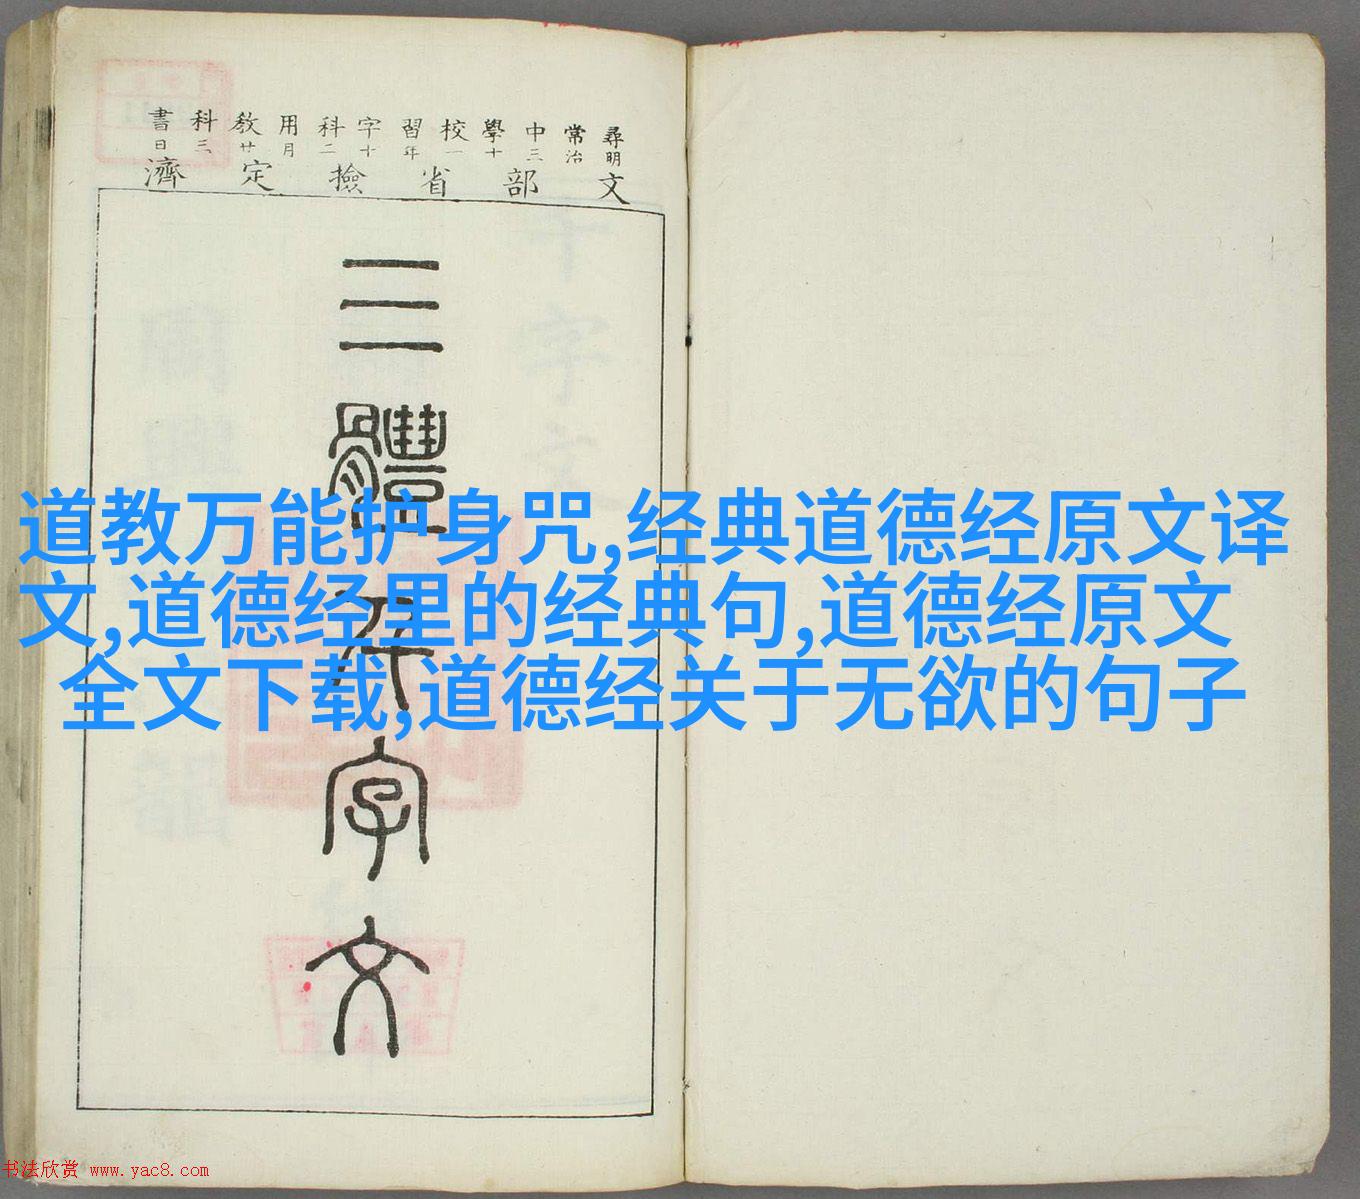 書科教用科字習校學中常尋
日三廿月二十年十一三治明
濟定檢省部文
三體千字文
道教万能护身咒,经典道德经原文译
文,道德经里的经典句,道德经原文
全文下载,道德经关于无欲的句子
书法欣赏 www.yac8.com